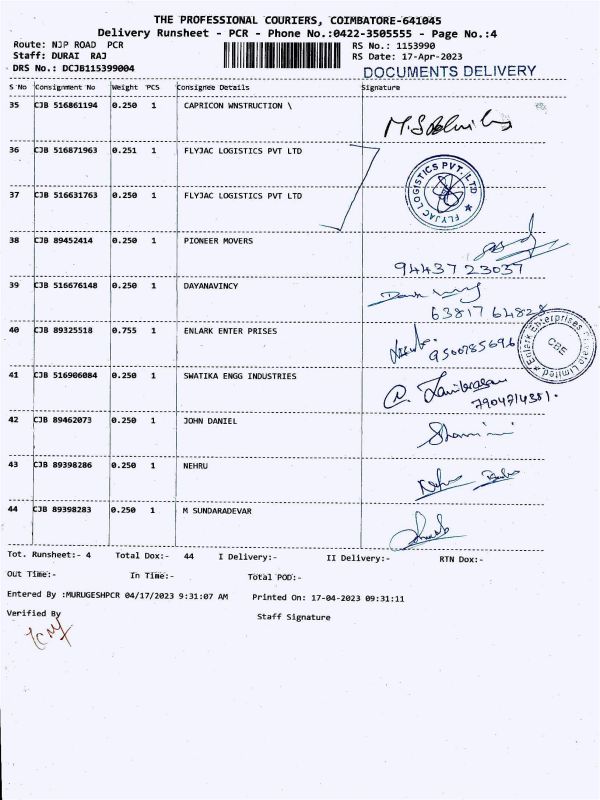 THE PROFESSIONAL COURIERS, COIMBATORE-641045
Delivery Runsheet - PCR - Phone No.:0422-3505555 - Page No.:4
Route: NJP ROAD PCR RS No.: 1153990
Staff: DURAI RAJ RS Date: 17-Apr-2023
DRS No.: DCJB115399004 DOCUMENTS DELIVERY
S No Consignment No Weight PCS Consignee Details Signature
35 CJB 516861194 0.250 1 CAPRICON WNSTRUCTION \
36 CJB 516871963 0.251 1 FLYJAC LOGISTICS PVT LTD
FLYJAC LOGISTICS PVT. LTD
37 CJB 516631763 0.250 1 FLYJAC LOGISTICS PVT LTD
38 CJB 89452414 0.250 1 PIONEER MOVERS
94437 23037
39 CJB 516676148 0.250 1 DAYANAVINCY
63817 64828
40 CJB 89325518 0.755 1 ENLARK ENTER PRISES
9500785696
Enlark Enterprises Private Limited
CBE
41 CJB 516906084 0.250 1 SWATIKA ENGG INDUSTRIES
7904914351.
42 CJB 89462073 0.250 1 JOHN DANIEL
43 CJB 89398286 0.250 1 NEHRU
Nehru
44 CJB 89398283 0.250 1 M SUNDARADEVAR
Tot. Runsheet:- 4 Total Dox:- 44 I Delivery:- II Delivery:- RTN Dox:-
Out Time:- In Time:- Total POD:-
Entered By :MURUGESHPCR 04/17/2023 9:31:07 AM Printed On: 17-04-2023 09:31:11
Verified By Staff Signature